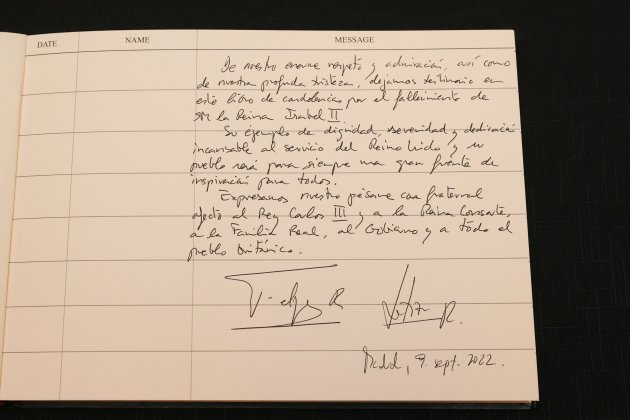 DATE NAME MESSAGE
De nuestro enorme respeto y admiración, así como
de nuestra profunda tristeza, dejamos testimonio en
este libro de condolencias por el fallecimiento de
SM la Reina Isabel II.
Su ejemplo de dignidad, serenidad y dedicación
incansable al servicio del Reino Unido y su
pueblo será para siempre una gran fuente de
inspiración para todos.
Expresamos nuestro pésame con fraternal
afecto al Rey Carlos III y a la Reina Consorte,
a la Familia Real, al Gobierno y a todo el
pueblo británico.
R R.
Madrid, 9. sept. 2022.